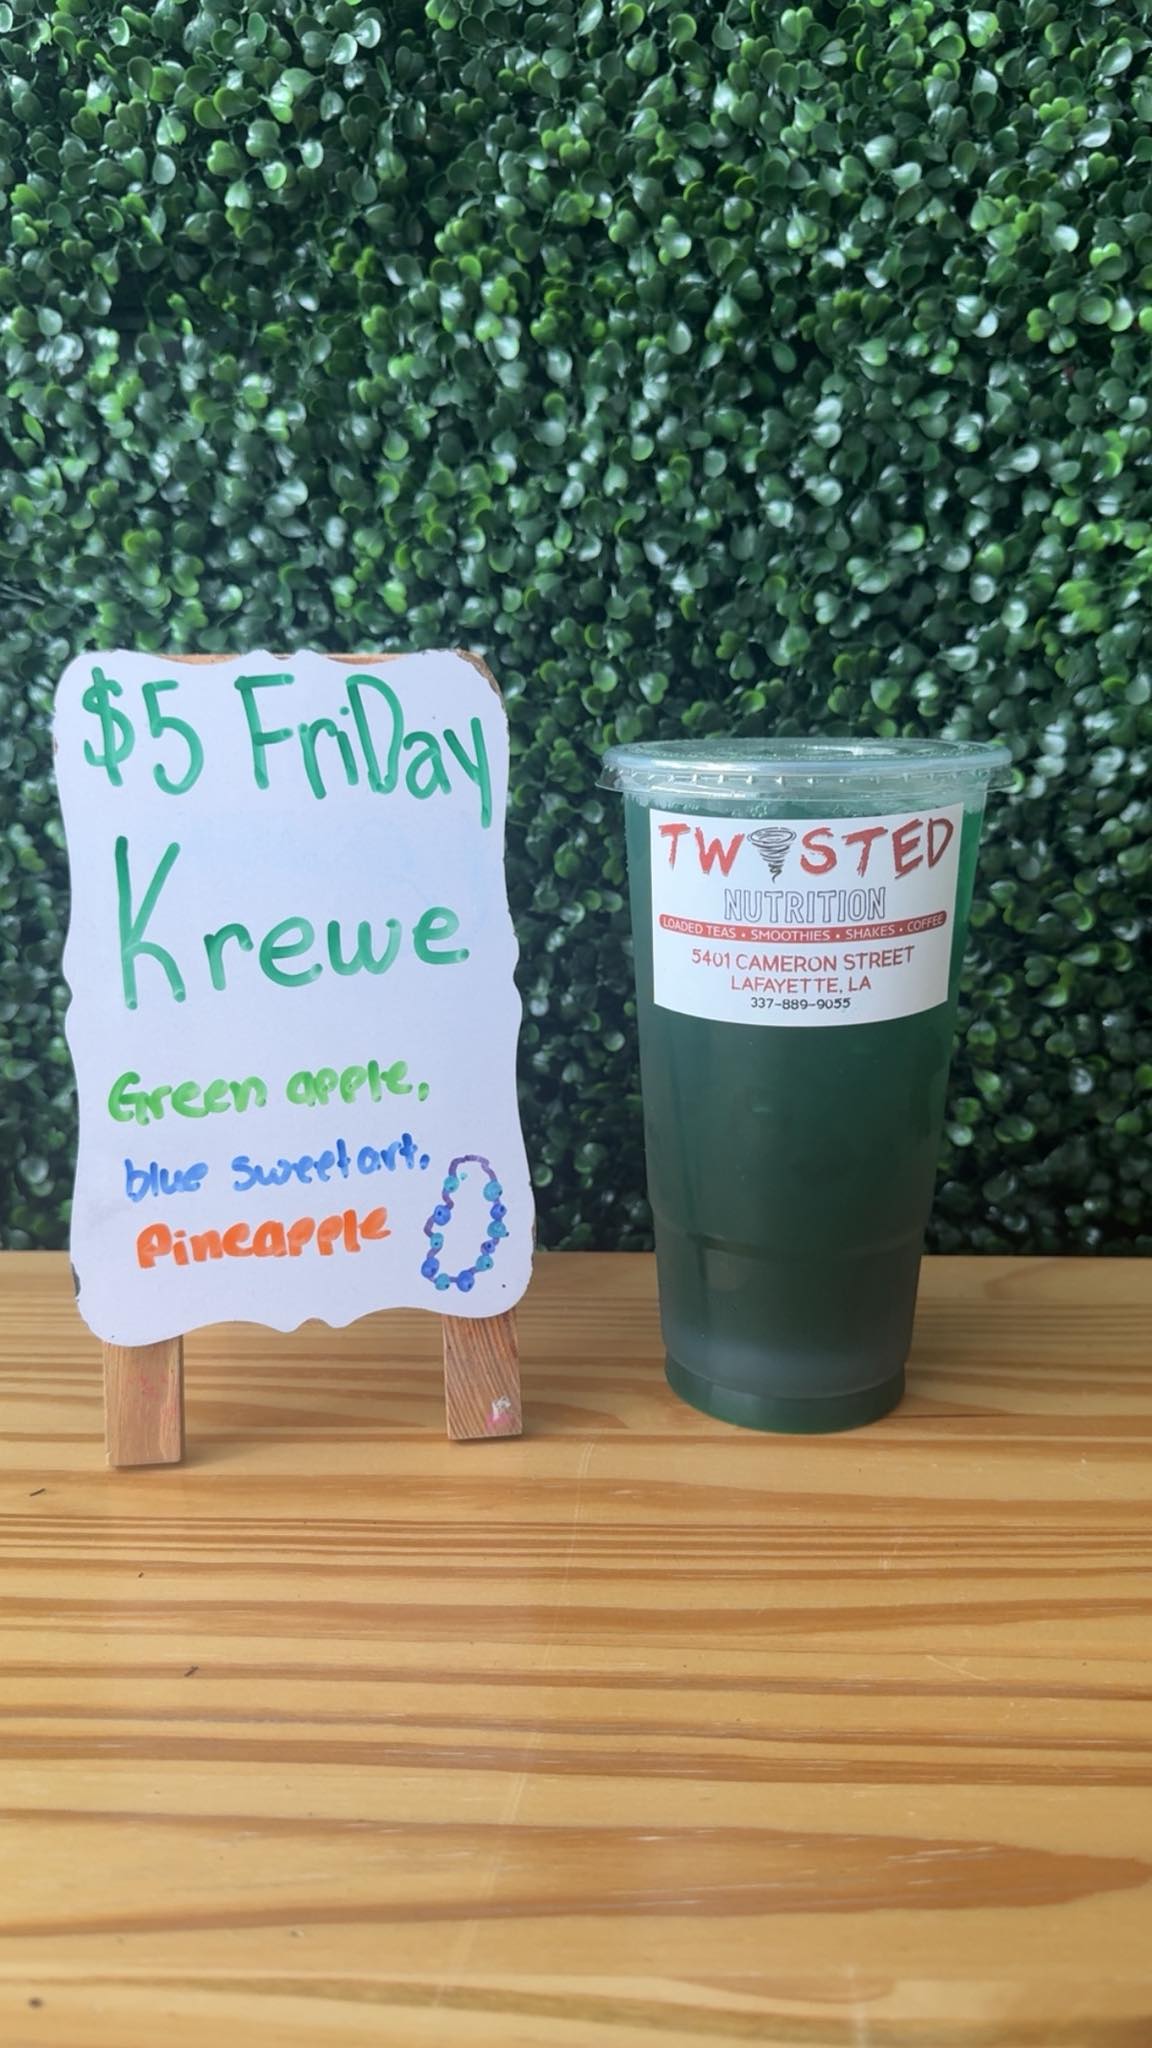 $5 FriDay
Krewe
Green apple,
blue sweetart,
Pineapple
TWISTED
NUTRITION
LOADED TEAS • SMOOTHIES • SHAKES • COFFEE
5401 CAMERON STREET
LAFAYETTE, LA
337-889-9055